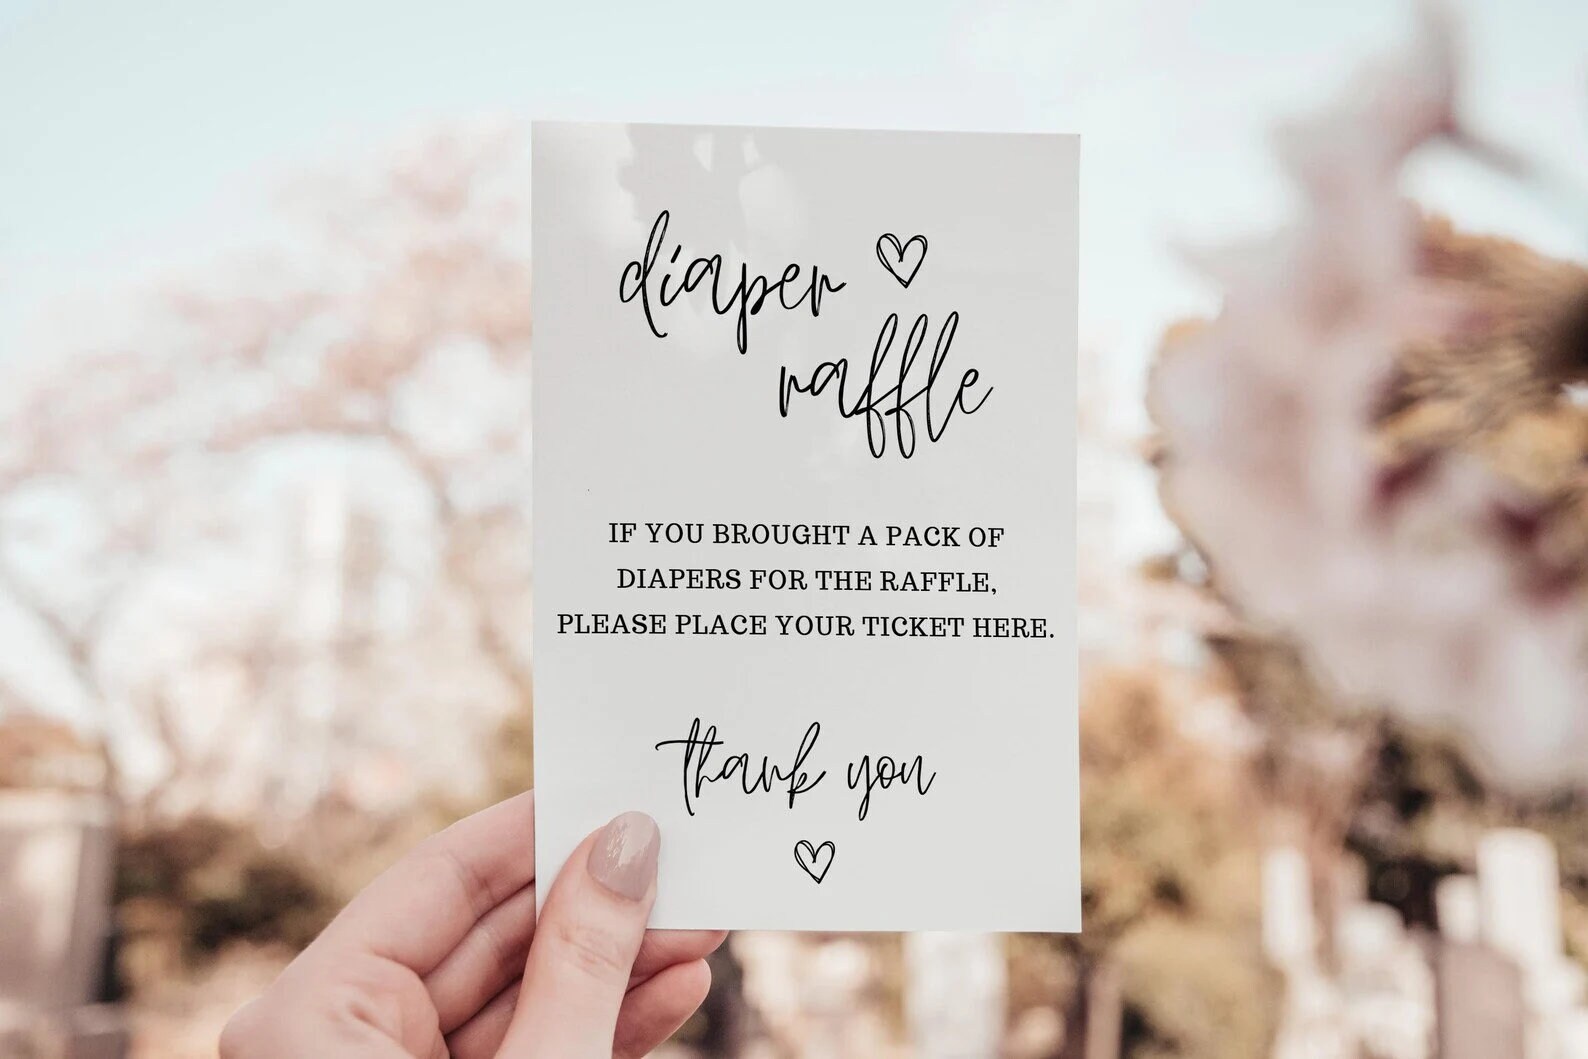 diaper
raffle
IF YOU BROUGHT A PACK OF
DIAPERS FOR THE RAFFLE,
PLEASE PLACE YOUR TICKET HERE.
thank you